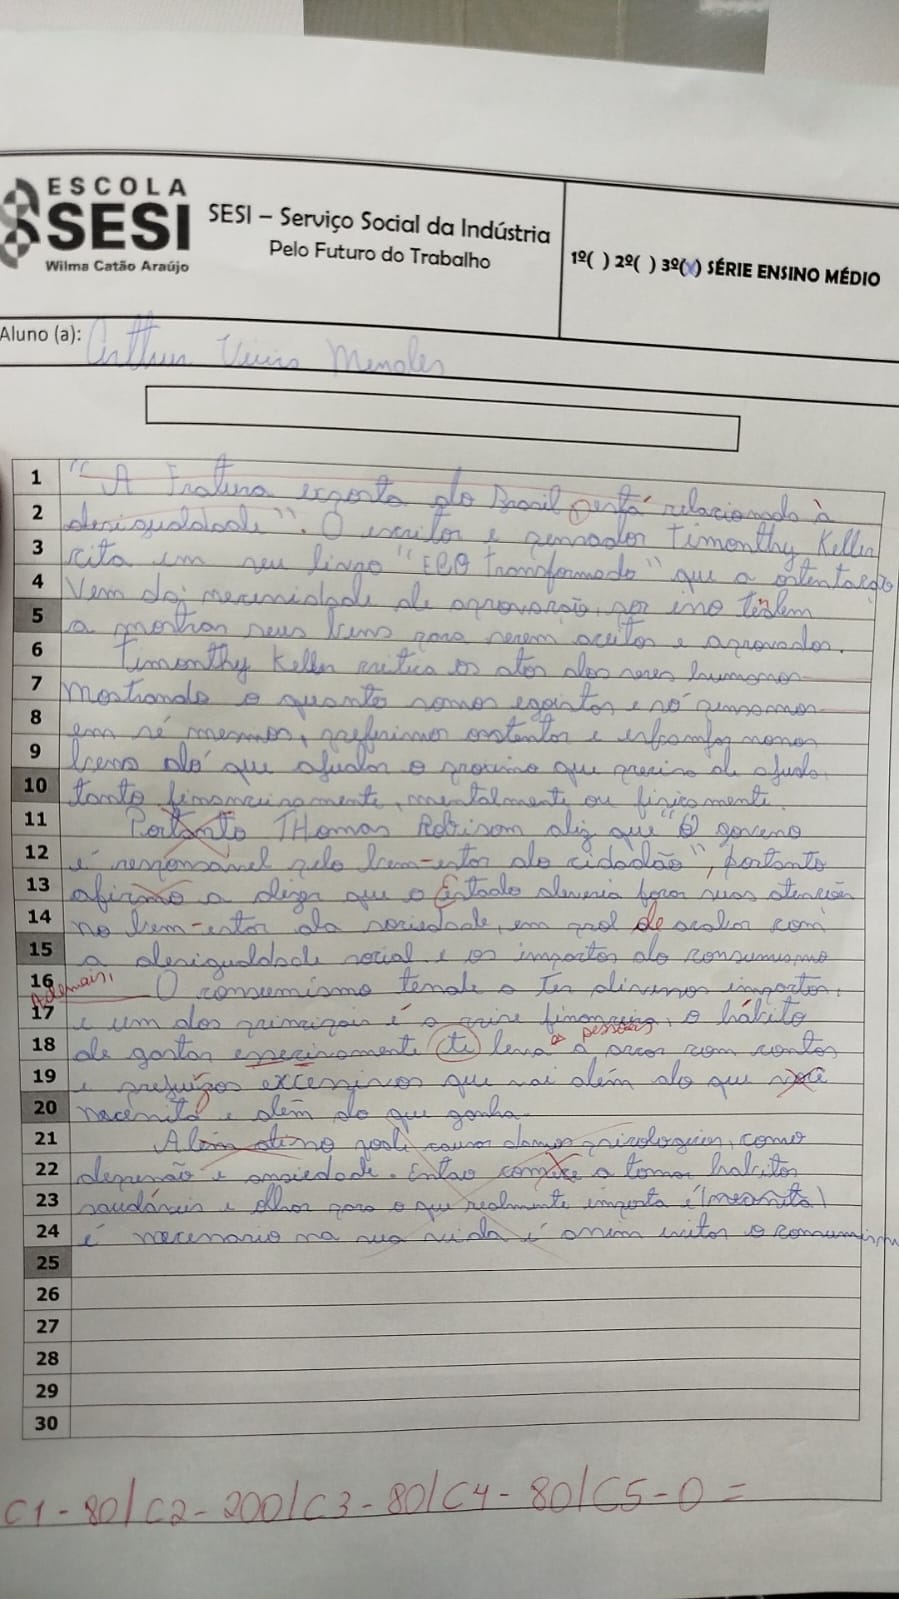 ESCOLA
SESI
Wilma Catão Araújo
SESI – Serviço Social da Indústria
Pelo Futuro do Trabalho
1º( ) 2º( ) 3º(x) SÉRIE ENSINO MÉDIO
Aluno (a): Arthur Mendes
1 "A Fratura exposta do Brasil está relacionado à
2 desigualdade". O escritor e pensador Timonthy Keller
3 cita em seu livro "EGO Transformado" que a ostentação
4 Vem da necessidade de aprovação, por isso tendem
5 a mostrar seus bens para serem aceitos e aprovados.
6 Timonthy Keller critica os atos dos seres humanos
7 Mostrando o quanto somos egoistas e só pensamos
8 em sé mesmos, preferimos ostentar e nossos
9 bens do que ajudar o proximo que precisa de ajuda,
10 tanto financeiramente, mentalmente ou fisicamente.
11 Portanto THomas Robison diz que "O governo
12 é responsável pelo bem-estar do cidadão", portanto
13 afirmo a dizer que o Estado deveria focar suas atenções
14 no bem-estar da sociedade, em prol de acabar com
15 a desigualdade social e os impactos do consumismo
Ademais,
16 O consumismo tende a ter diversos impactos,
17 e um dos principais é a crise financeira, o hábito
as pessoas
18 de gastar te leva a arcar com contas
19 e prejuízos excessivos que vai além do que você
20 necessita e além do que ganha.
21 Além disso pode causar danos psicologicos, como
22 depressão e ansiedade. Entao comece a tomar habitos
23 saudáveis e olhar para o que realmente importa e
24 é necessario na sua vida e assim evitar o consumismo
25
26
27
28
29
30
C1-80/C2-200/C3-80/C4-80/C5-0=